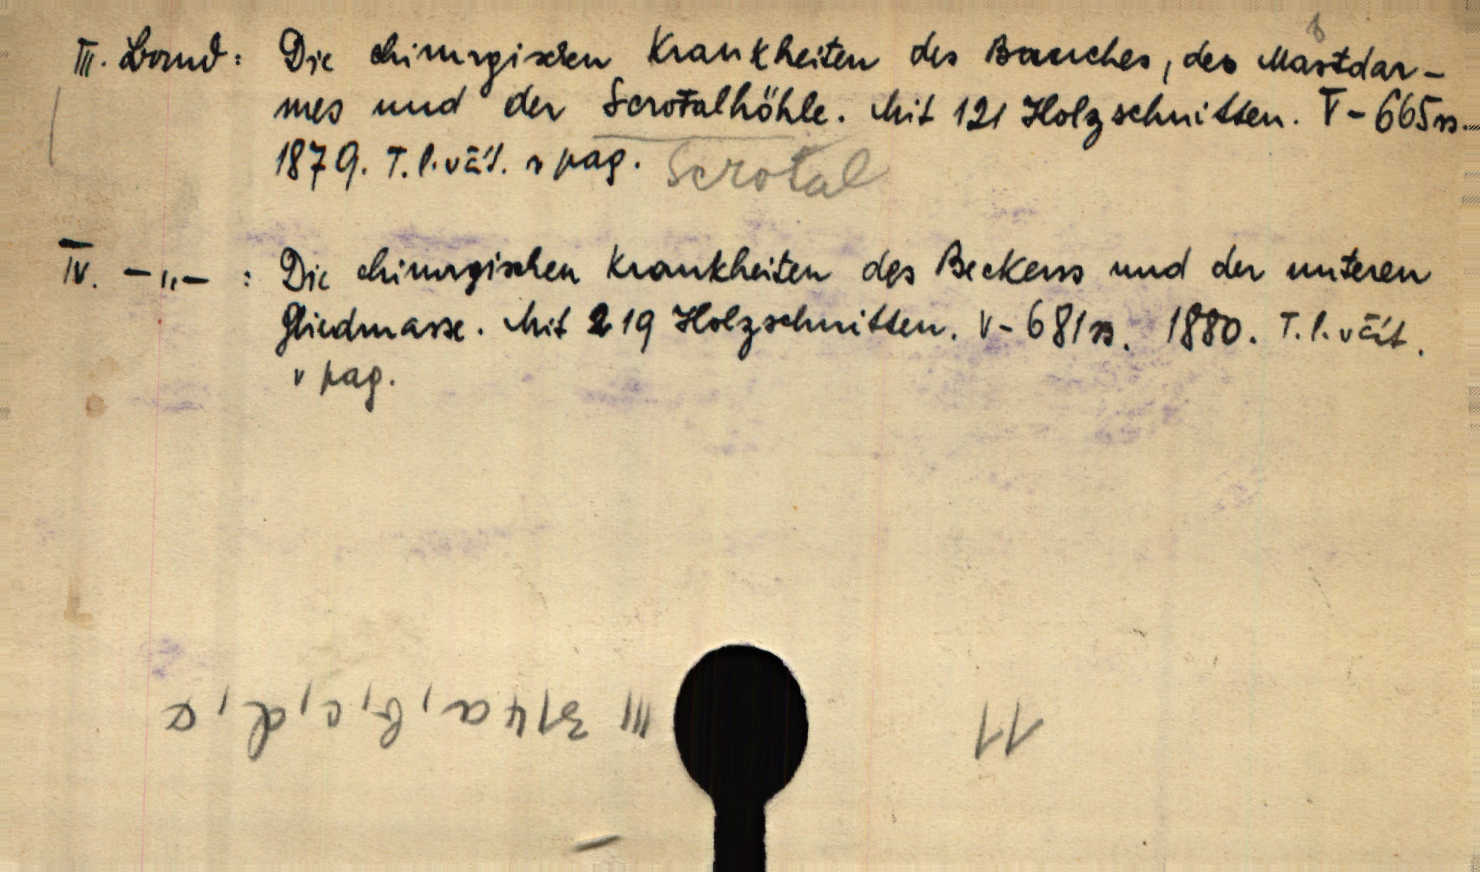 III. Band: Die chirurgischen Krankheiten des Bauches, des Mastdar-
mes und der Scrotalhöhle. Mit 121 Holzschnitten. V-665 ss.
1879. T. l. väž. v pag.
Scrotal
IV. -„- : Die chirurgischen Krankheiten des Beckens und der unteren
Gliedmasse. Mit 219 Holzschnitten. V-681 ss. 1880. T. l.
v pag.
III 314 a, b, c, d, e
11